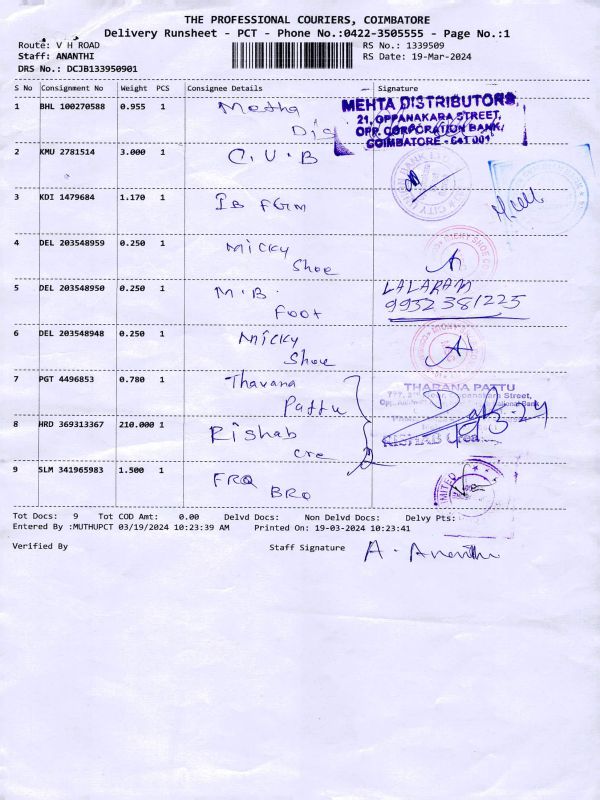 THE PROFESSIONAL COURIERS, COIMBATORE
Delivery Runsheet - PCT - Phone No.:0422-3505555 - Page No.:1
Route: V H ROAD
RS No.: 1339509
Staff: ANANTHI
RS Date: 19-Mar-2024
DRS No.: DCJB133950901
S No Consignment No Weight PCS Consignee Details Signature
1 BHL 100270588 0.955 1 Metha
Dis
MEHTA DISTRIBUTORS
21, OPPANAKARA STREET,
OPP. CORPORATION BANK,
COIMBATORE - 641 001
2 KMU 2781514 3.000 1 C.U.B
3 KDI 1479684 1.170 1 IB FGM
4 DEL 203548959 0.250 1 Micky
Shoe
5 DEL 203548950 0.250 1 M.B.
Foot
LALARAM
9952381225
6 DEL 203548948 0.250 1 Micky
Shoe
7 PGT 4496853 0.780 1 Thavana
Pattu
THARANA PATTU
8 HRD 369313367 210.000 1 Rishab
Cre
RISHAB Crea
9 SLM 341965983 1.500 1 FRQ
BRO
Tot Docs: 9 Tot COD Amt: 0.00 Delvd Docs: Non Delvd Docs: Delvy Pts:
Entered By :MUTHUPCT 03/19/2024 10:23:39 AM Printed On: 19-03-2024 10:23:41
Verified By Staff Signature A. Ananthi